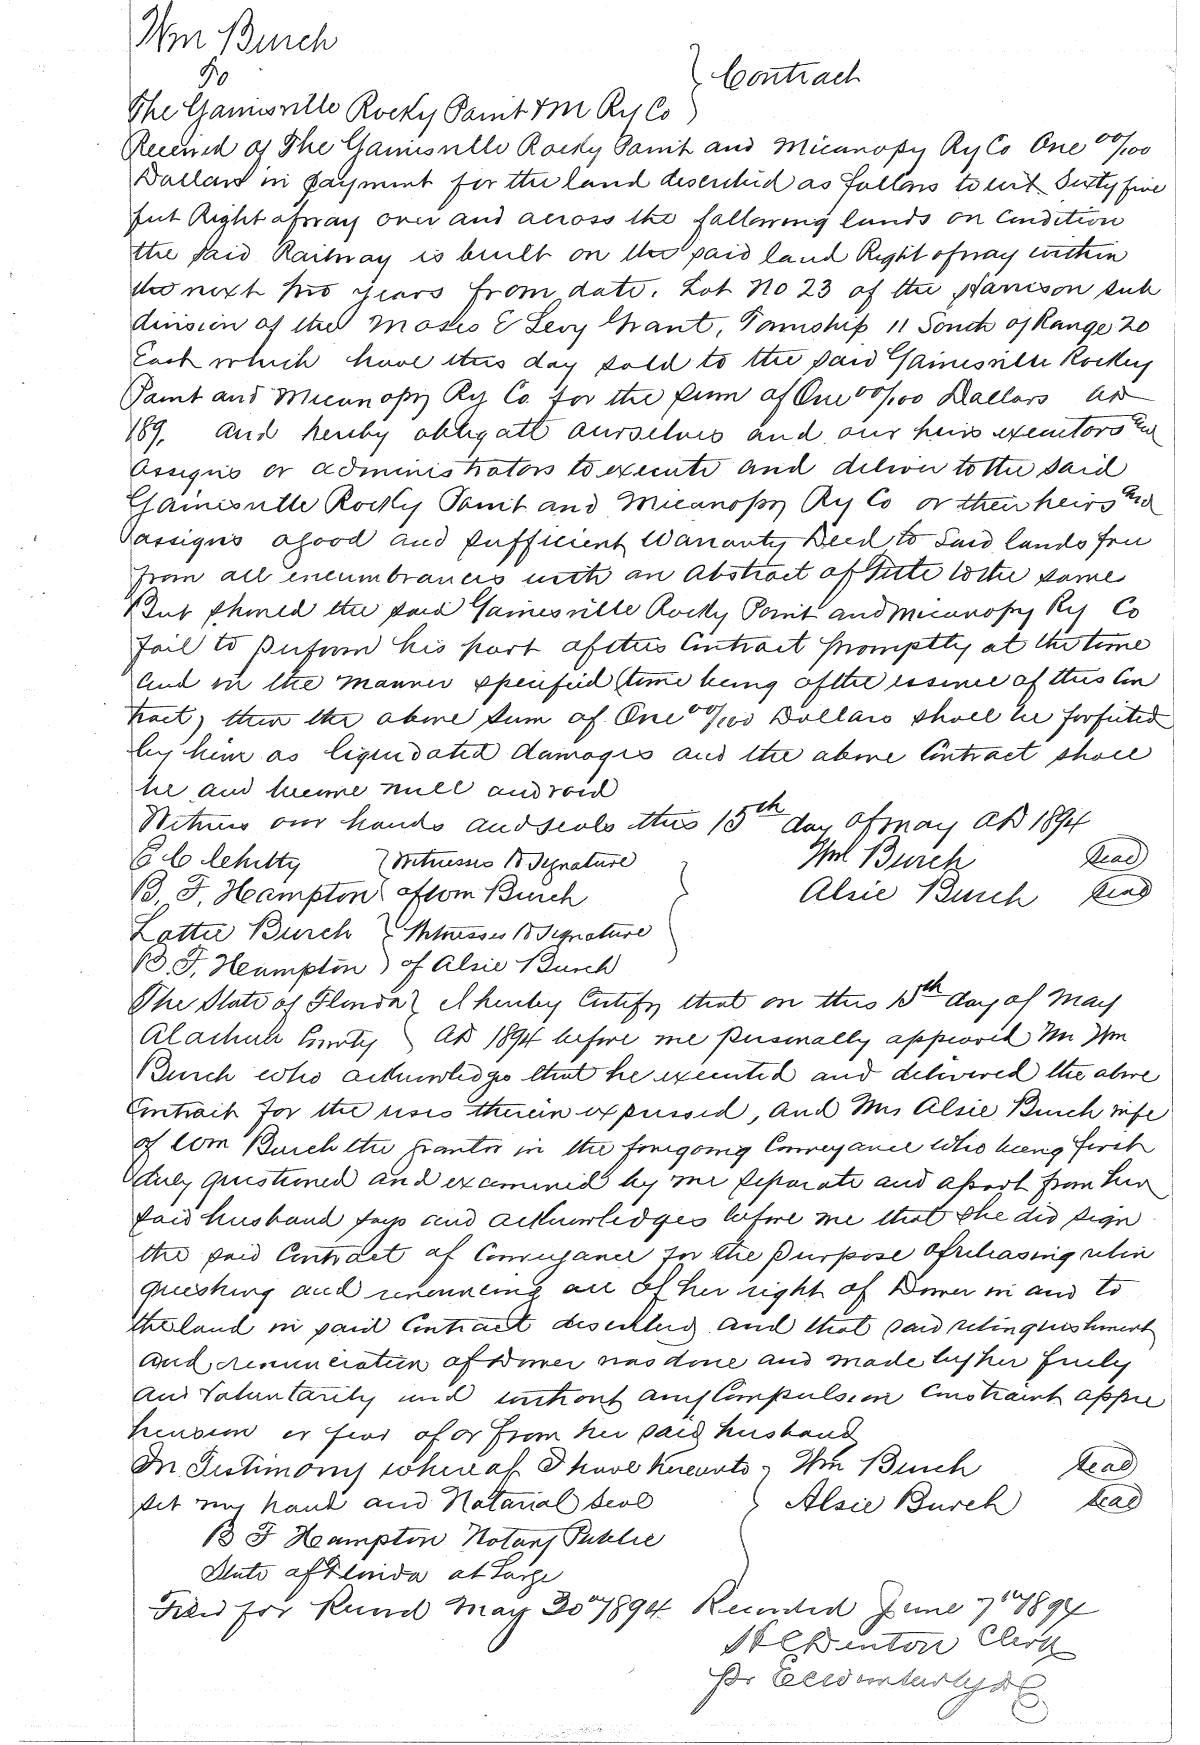 Wm Burch
To
Contract
The Gainesville Rocky Point & M Ry Co
Received of The Gainesville Rocky Point and Micanopy Ry Co One 00/100
Dollars in payment for the land described as follows to wit. Sixty five
feet Right of way over and across the following lands on Condition
the said Railway is built on the said land Right of way within
the next two years from date. Lot No 23 of the Harrison sub
division of the Moses E Levy Grant, Township 11 South of Range 20
East which have this day sold to the said Gainesville Rocky
Point and Micanopy Ry Co for the sum of One 00/100 Dollars AD
189. and hereby obligate ourselves and our heirs executors and
assigns or administrators to execute and deliver to the said
Gainesville Rocky Point and Micanopy Ry Co or their heirs and
assigns a good and sufficient Warranty Deed to Said lands free
from all encumbrances with an Abstract of Title to the same
But should the said Gainesville Rocky Point and Micanopy Ry Co
fail to perform his part of this Contract promptly at the time
and in the manner specified (time being of the essence of this Con
tract) then the above sum of One 00/100 Dollars shall be forfeited
by him as liquidated damages and the above Contract shall
be and become null and void
Witness our hands and seals this 15th day of May AD 1894
E C Chitty } Witnesses to Signature Wm Burch (seal)
B. F. Hampton } of Wm Burch Alsie Burch (seal)
Lottie Burch } Witnesses to Signature
B. F. Hampton } of Alsie Burch
The State of Florida } I hereby Certify that on this 15th day of May
Alachua County } AD 1894 before me personally appeared Mr Wm
Burch who acknowledges that he executed and delivered the above
Contract for the uses therein expressed, and Mrs Alsie Burch wife
of Wm Burch the grantor in the foregoing Conveyance who being first
duly questioned and examined by me separate and apart from her
said husband says and acknowledges before me that she did sign
the said Contract of Conveyance for the purpose of releasing relin
quishing and renouncing all of her right of Dower in and to
the land in said Contract described and that said relinquishment
and renunciation of Dower was done and made by her freely
and Voluntarily and without any Compulsion Constraint appre
hension or fear of or from her said husband
In Testimony whereof I have hereunto } Wm Burch (seal)
set my hand and Notarial Seal } Alsie Burch (seal)
B F Hampton Notary Public
State of Florida at Large
Filed for Record May 30th 1894 Recorded June 7th 1894
H C Denton Clerk